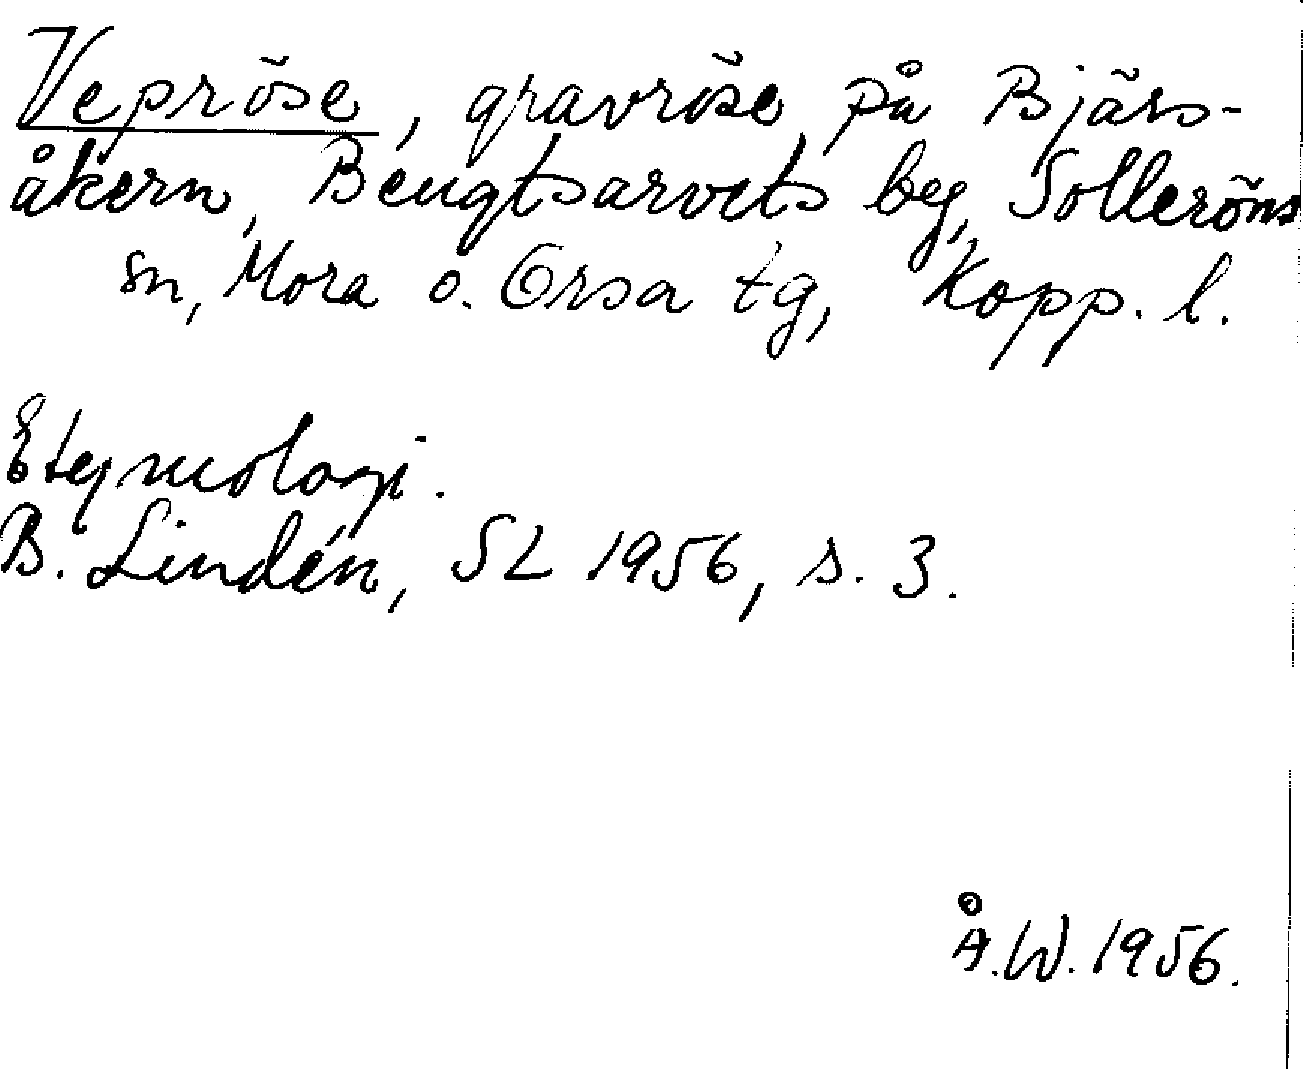 Vepröse, gravröse på Bjärs-
åkern, Bengtsarvets beg, Solleröns
sn, Mora o. Orsa tg, Kopp. l.
Etymologi.
B. Lindén, SL 1956, s. 3.
Å.W. 1956.